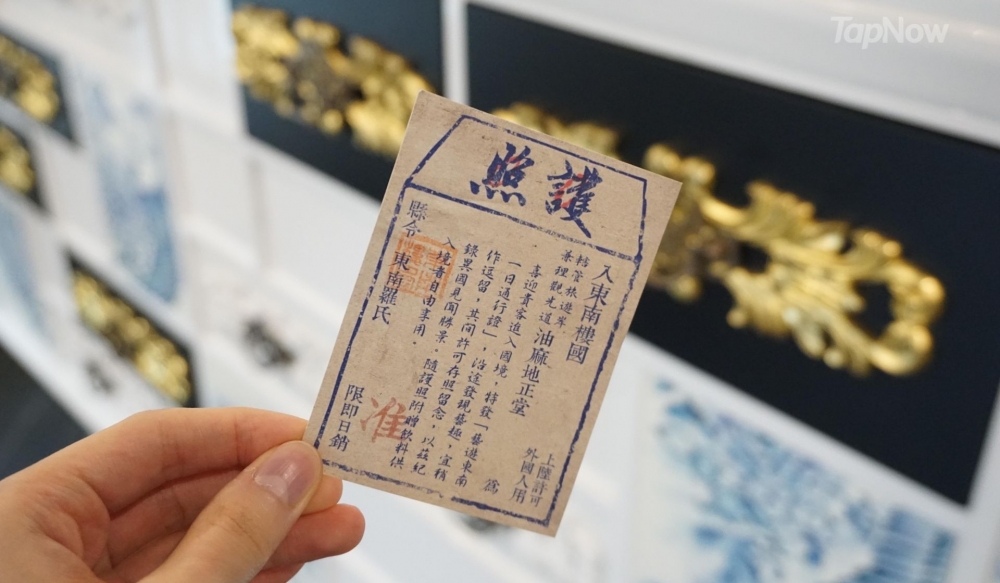 TapNow
護照
入東南樓國
上陸許可
外國人用
轄管旅遊岸
兼理觀光道
油麻地正堂 為
喜迎貴客進入國境,特發「藝遊東南
一日通行證」,沿途發現藝趣,宜稍
作逗留,其間許可存照留念,以茲紀
錄異國見聞勝景。隨護照附贈飲料供
入境者自由享用。
准
縣令 東南羅氏
限即日銷